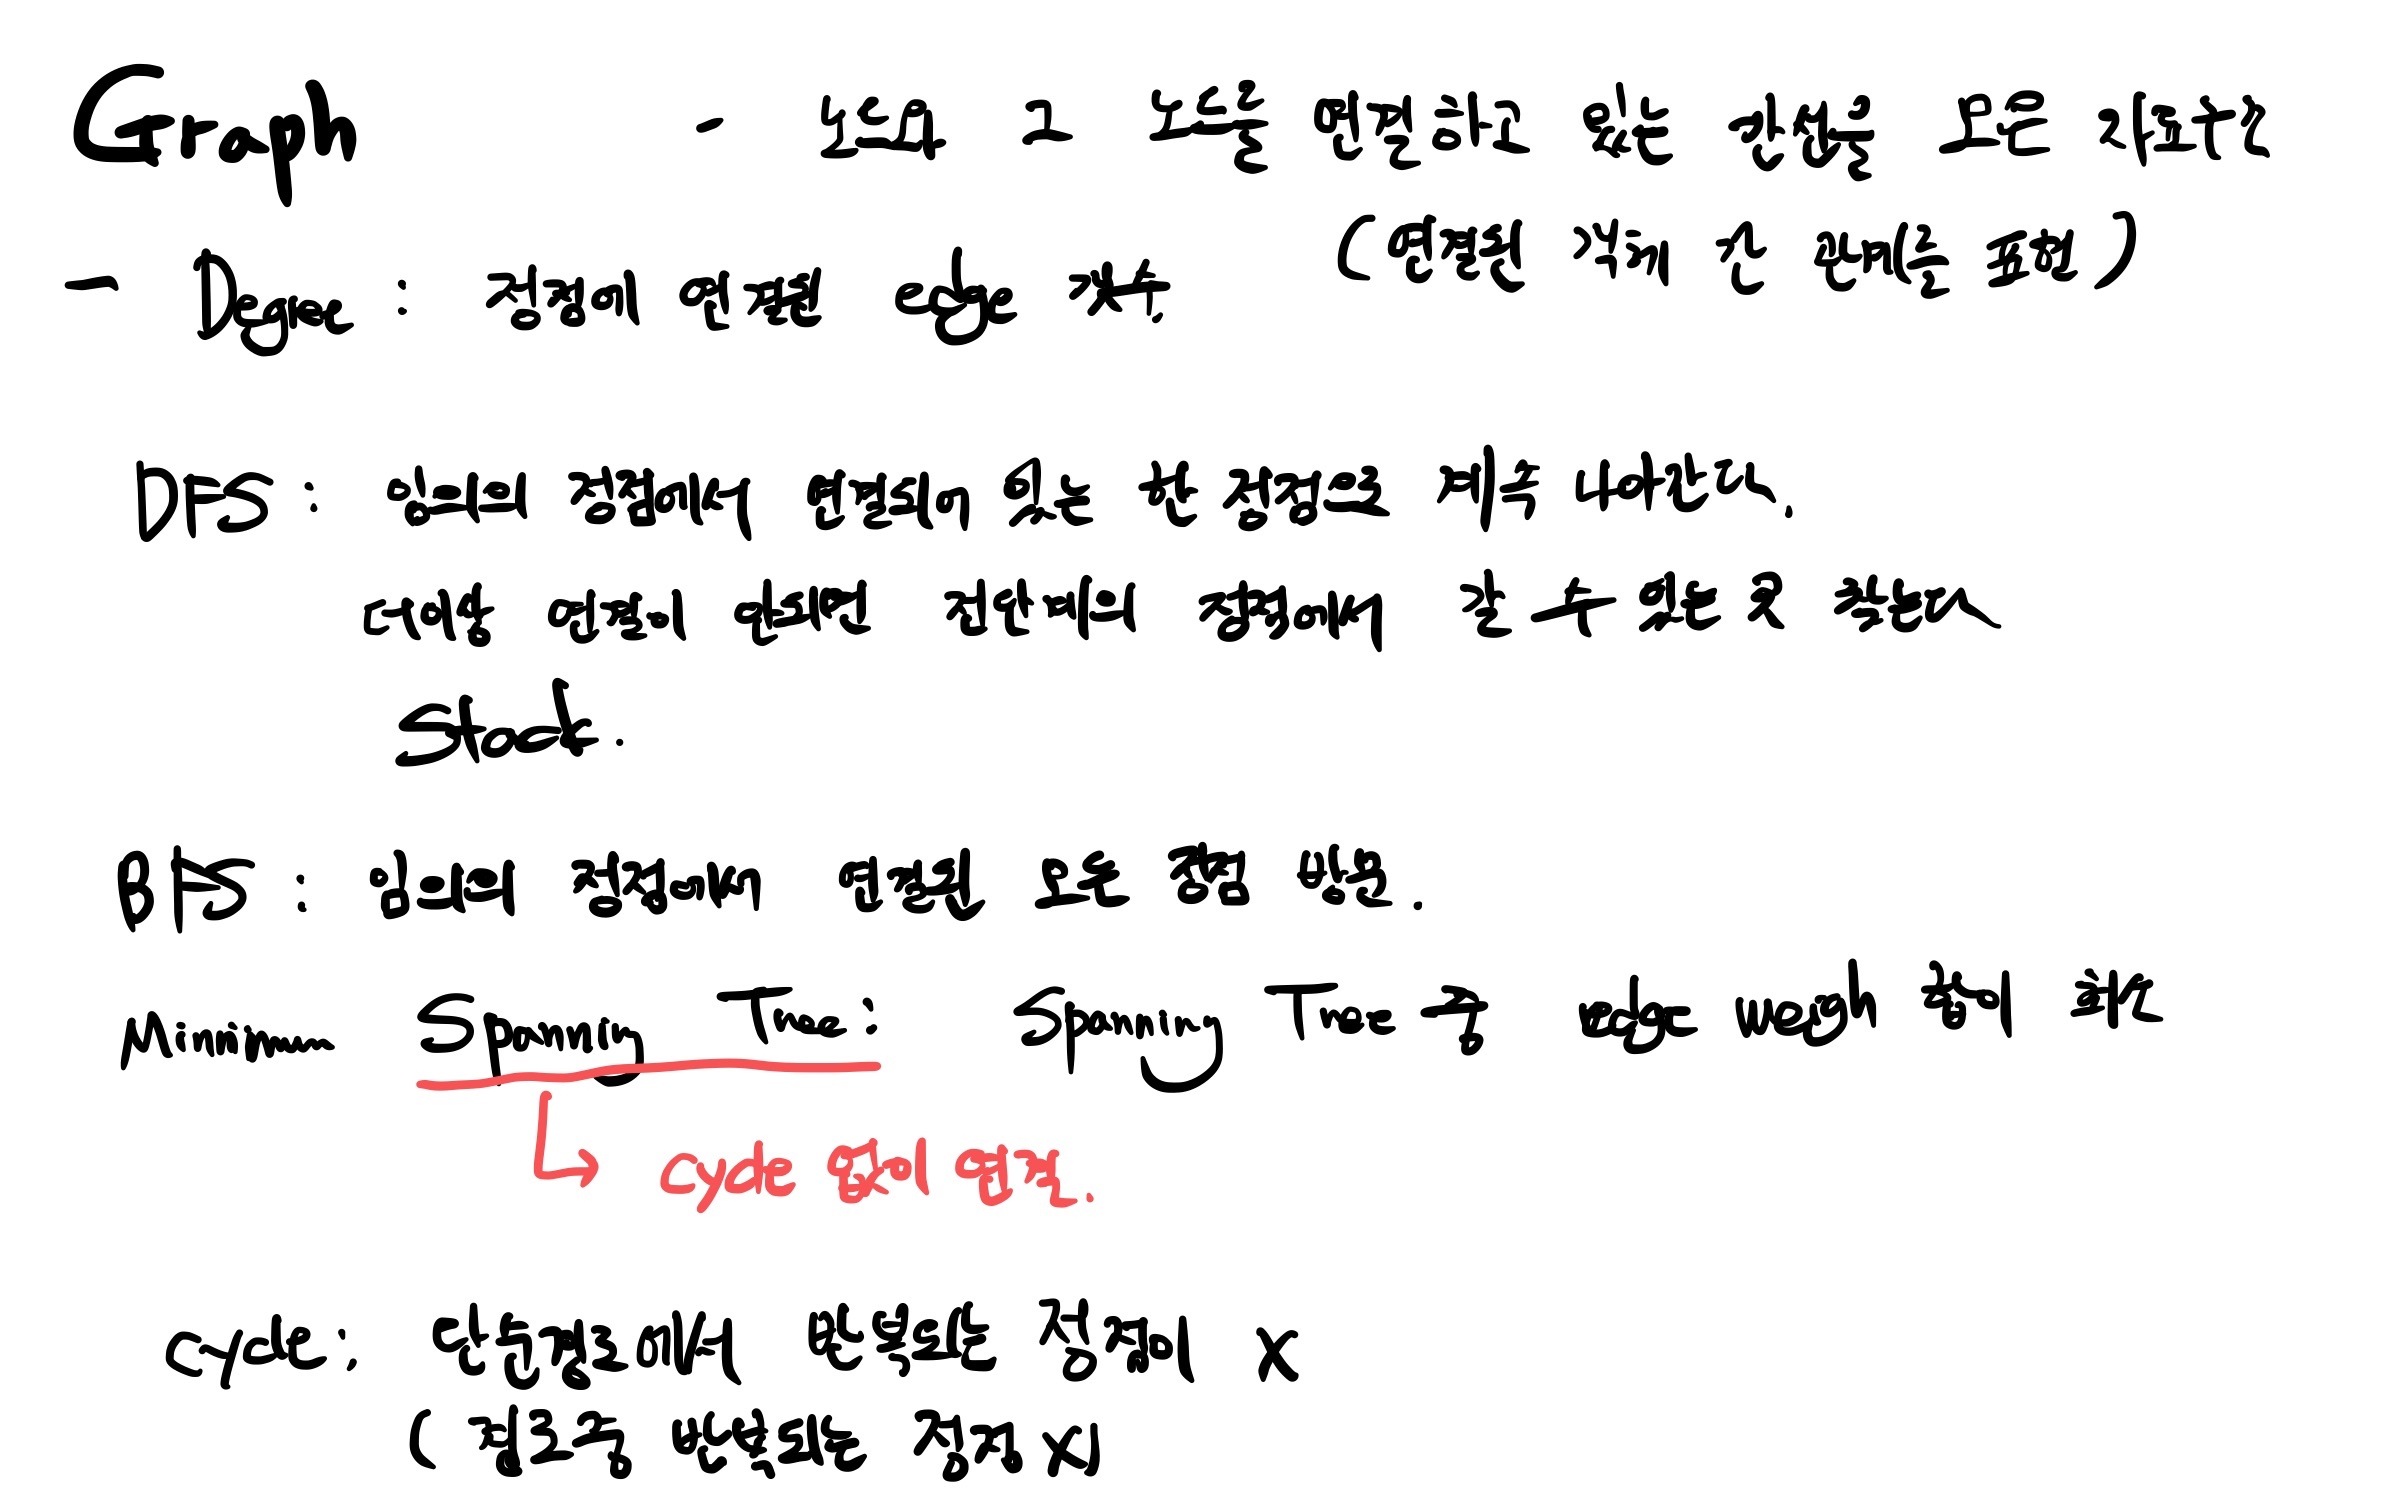 Graph - 노드와 그 노드를 연결하고 있는 간선을 모은 자료구조
(연결된 객체 간 관계를 표현)
- Degree : 정점에 연결된 edge 개수.
DFS : 임의의 정점에서 연결되어 있는 한 정점으로 계속 나아간다.
더이상 연결이 안되면 직전의 정점에서 갈 수 있는 곳 찾는다
Stack.
BFS : 임의의 정점에서 연결된 모든 정점 방문.
Minimum Spanning Tree : Spanning Tree 중 edge weigh 합이 최소
↳ cycle 없이 연결.
cycle : 단순경로에서 반복되는 정점이 X
( 경로중 반복되는 정점 X)